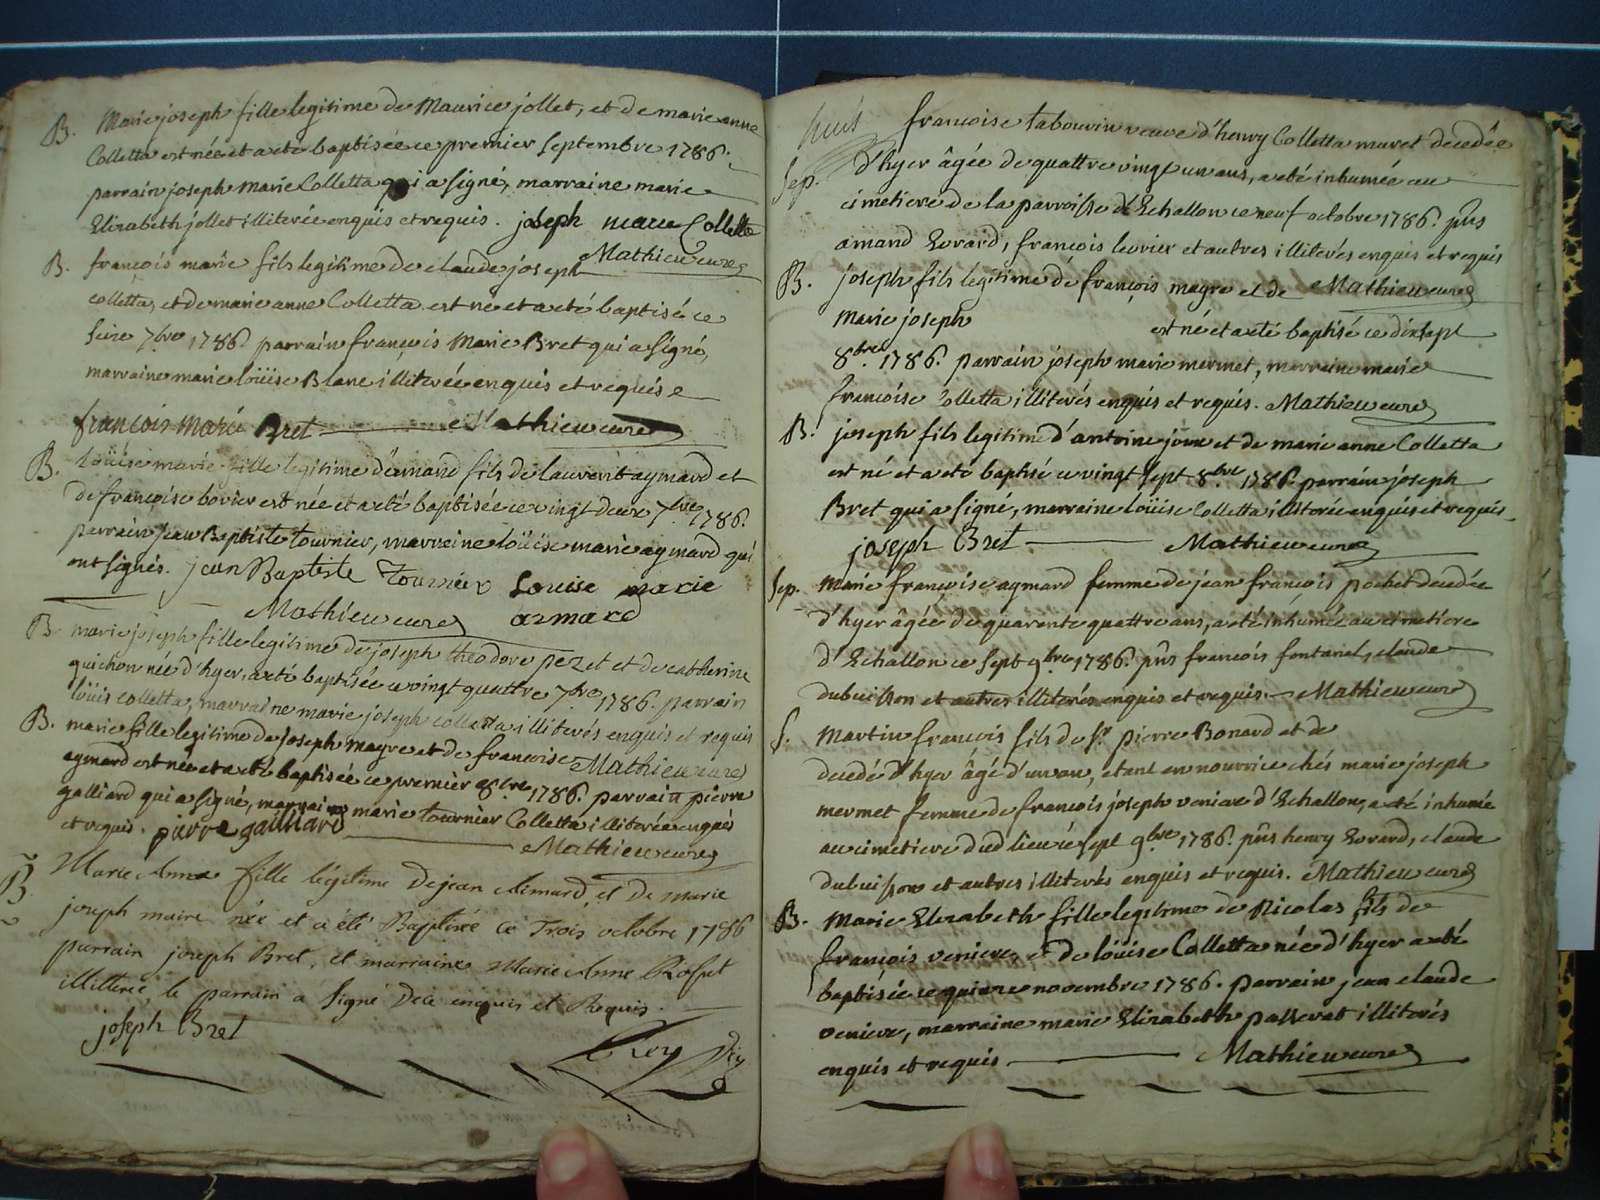 B. Marie joseph fille legitime de Maurice jollet, et de marie anne
Colletta est née et a eté baptisée ce premier septembre 1786.
parrain joseph marie Colletta qui a signé, marraine marie
Elizabeth jollet illiterée enquis et requis. joseph marie Colletta
Mathieu curé
B. françois marie fils legitime de claude joseph
colletta, et de marie anne Colletta est né et a eté baptisé ce
seize 7bre 1786. parrain françois Marie Bret qui a signé,
marraine marie loüise Blanc illiterée enquis et requise
françois marie Bret Mathieu curé
B. Loüise marie fille legitime d'amand fils de laurent aymard et
de françoise bovier est née et a eté baptisée ce vingt deux 7bre 1786.
parrain jean Baptiste tournier, marraine loüise marie aymard qui
ont signés. jean Baptiste Tournier Louise marie
Mathieu curé armard
B. marie joseph fille legitime de joseph theodore pezet et de catherine
guichon née d'hyer, a eté baptisée ce vingt quattre 7bre 1786. parrain
loüis colletta, marraine marie joseph colletta illiterés enquis et requis
B. marie fille legitime de joseph magre et de françoise Mathieu curé
aymard est née et a eté baptisée ce premier 8bre 1786. parrain pierre
galliard qui a signé, marraine marie tournier Colletta illiterée enquis
et requis. pierre gailliard Mathieu curé
B Marie Anne fille légitime de jean Aimard, et de marie
joseph maire née et a été Baptisée ce Trois octobre 1786
parrain joseph Bret, et marraine Marie Anne
illitterée, le parrain a signé de ce enquis et Requis.
joseph Bret
françoise tabouvin veuve d'henry Colletta muret decedée
Sep. d'hyer âgée de quattre vingt un ans, a eté inhumée au
cimetiere de la parroisse d'Echallon ce neuf octobre 1786. pñs
amand Evrard, françois levrier et autres illiterés enquis et requis
B. joseph fils legitime de françois magre et de Mathieu curé
marie joseph est né et a eté baptisé ce dixsept
8bre 1786. parrain joseph marie mermet, marraine marie
françoise Colletta illiterés enquis et requis. Mathieu curé
B. joseph fils legitime d'antoine jour et de marie anne Colletta
est né et a eté baptisé ce vingt sept 8bre 1786. parrain joseph
Bret qui a signé, marraine loüise Colletta illiterée enquis et requis
joseph Bret Mathieu curé
Sep. Marie françoise aymard femme de jean françois pochet decedée
d'hyer âgée de quarente quattre ans, a eté inhumée au cimetiere
d'Echallon ce sept 9bre 1786. pñs françois fontanel, claude
dubuisson et autres illiterés enquis et requis. Mathieu curé
S. Martin françois fils de Sr. pierre Bonard et de
decedé d'hyer âgé d'un an, etant en nourrice chés marie joseph
mermet femme de françois joseph veniere d'Echallon, a eté inhumé
au cimetiere dud lieu ce sept 9bre 1786. pñs henry Evrard, claude
dubuisson et autres illiterés enquis et requis. Mathieu curé
B. Marie Elizabeth fille legitime de Nicolas fils de
françois veniere, et de loüise Colletta née d'hyer a eté
baptisée ce quinze novembre 1786. parrain jean claude
veniere, marraine marie Elizabeth passerat illiterés
enquis et requis Mathieu curé